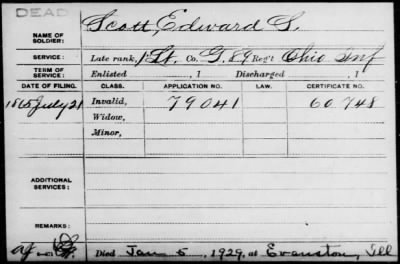 DEAD
NAME OF SOLDIER: Scott, Edward S.
SERVICE: Late rank, 1 Lt. Co. G. 89 Reg't Ohio Inf
TERM OF SERVICE: Enlisted , 1 Discharged , 1
DATE OF FILING. CLASS. APPLICATION NO. LAW. CERTIFICATE NO.
1865 July 21 Invalid, 79041 60748
Widow,
Minor,
ADDITIONAL SERVICES:
REMARKS:
Died Jan 5, 1929, at Evanston, Ill